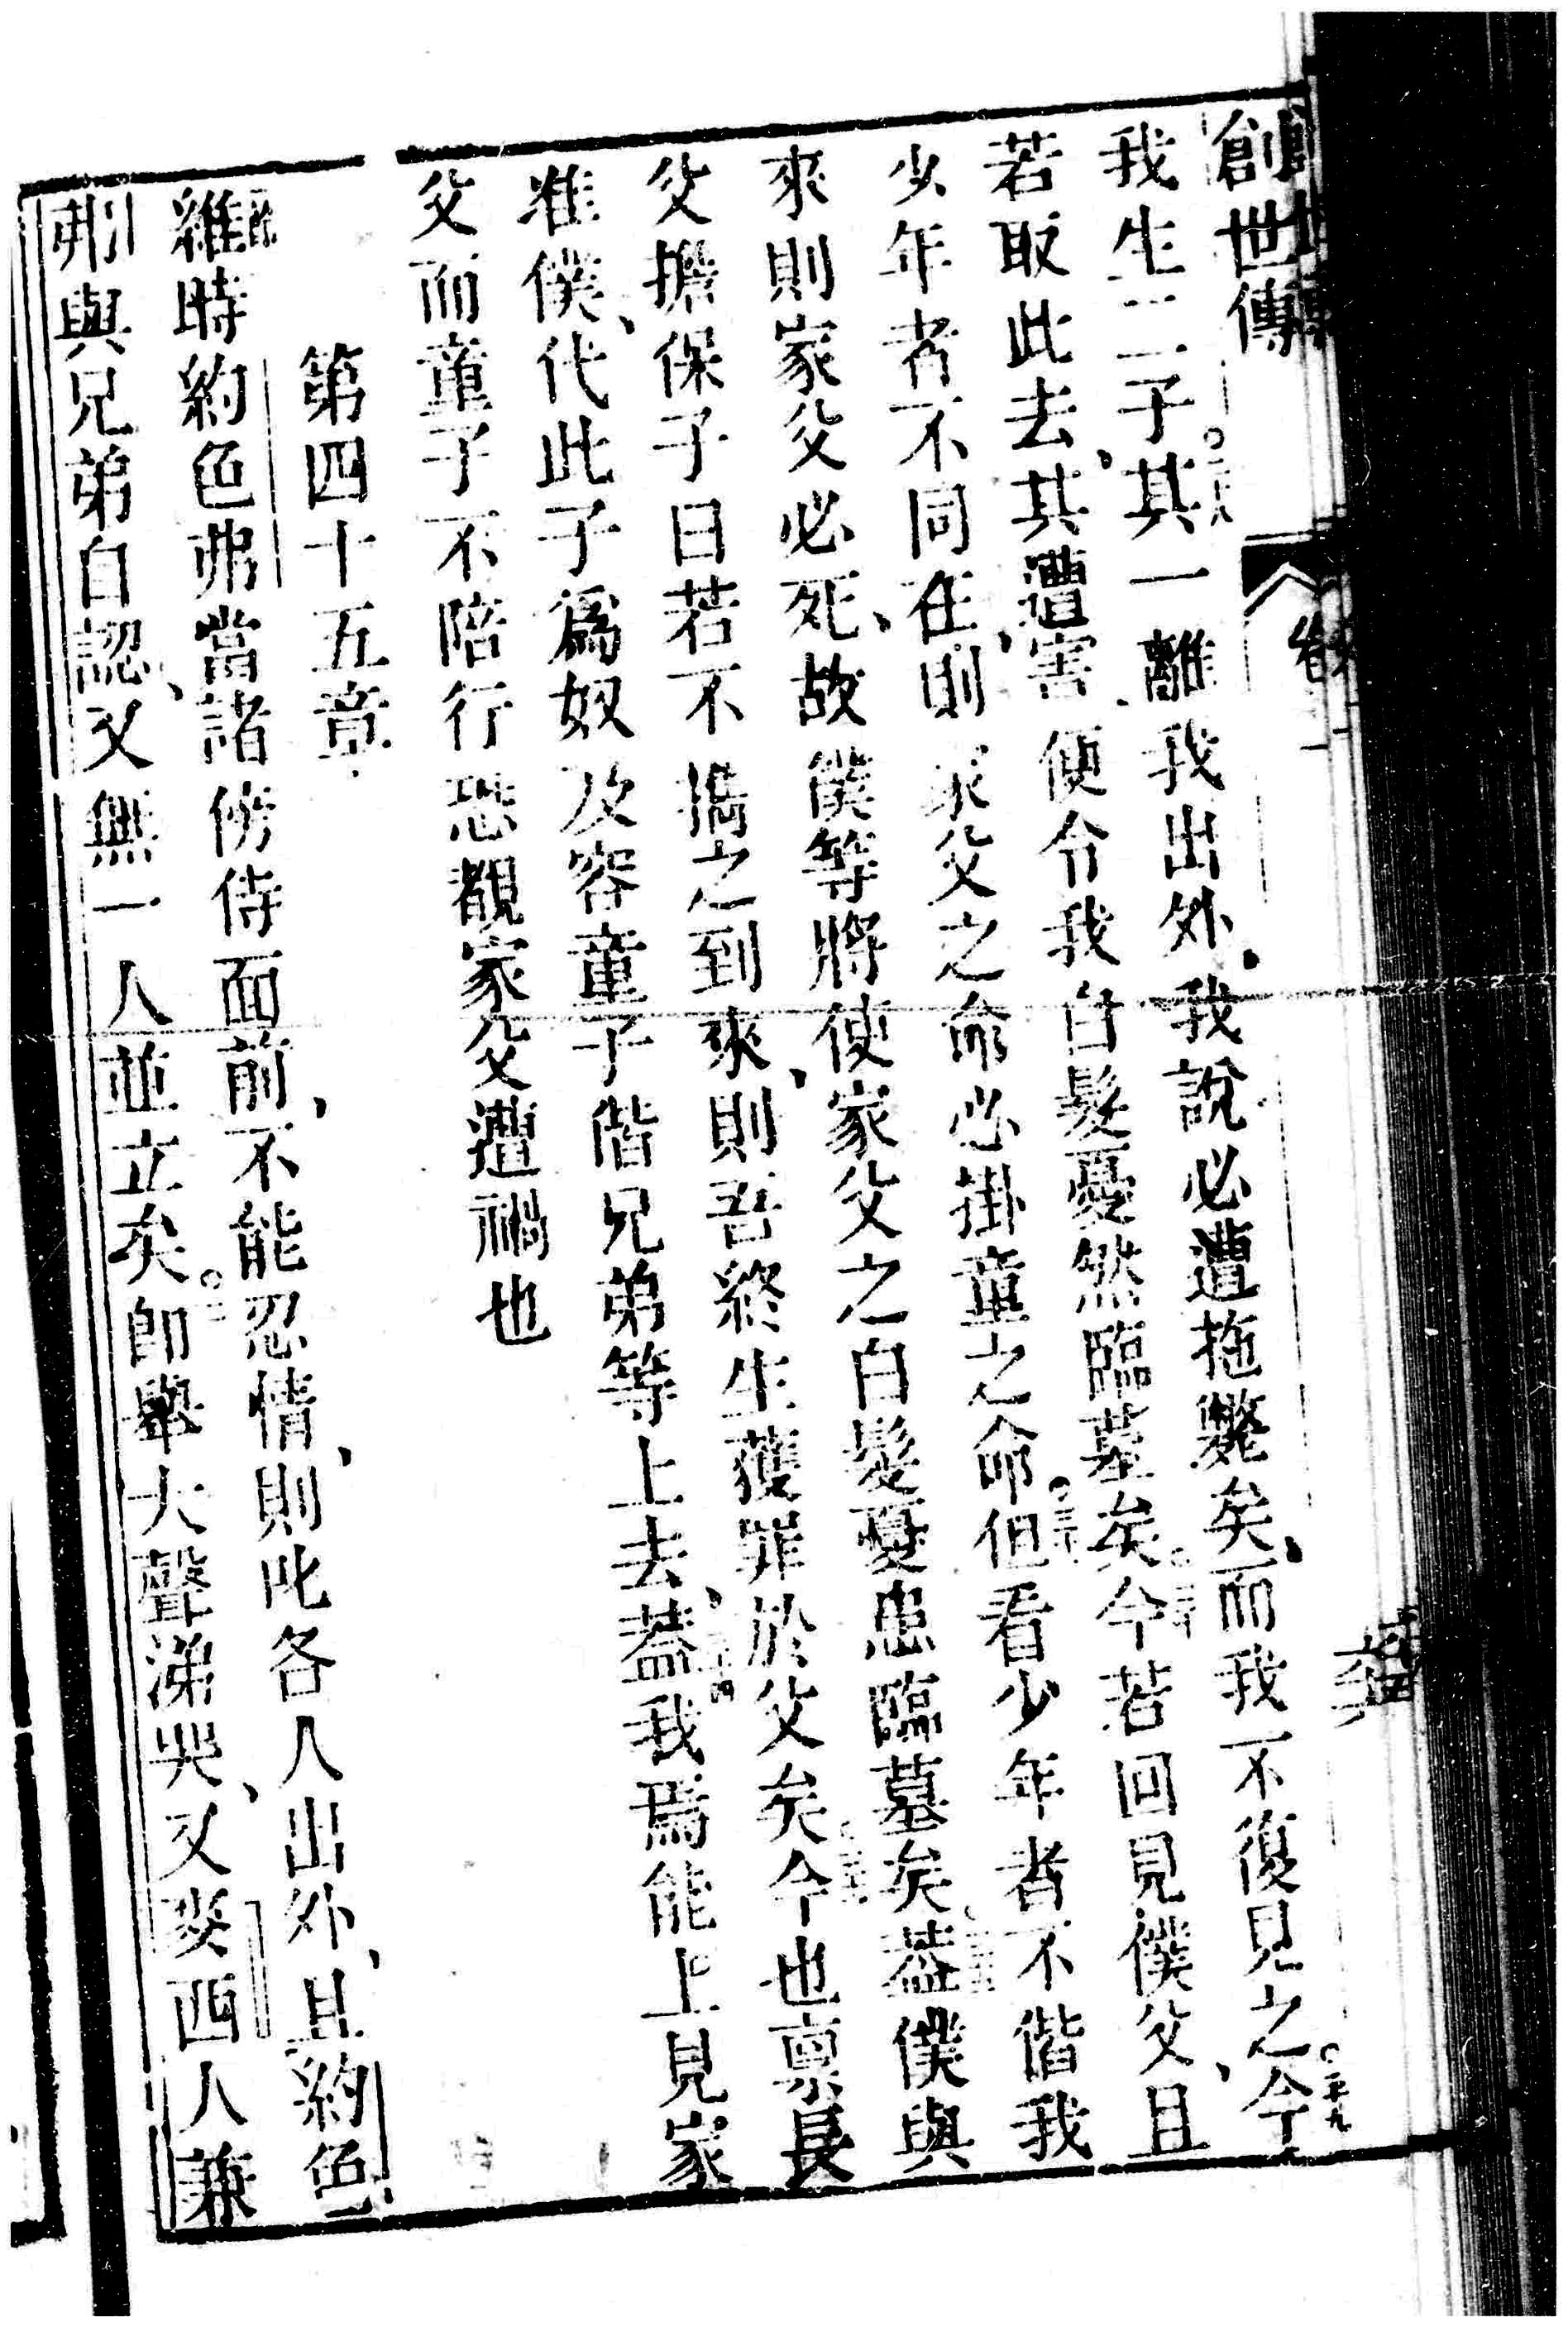 創世傳
我生二子其一離我出外、我說必遭拖斃矣、而我不復見之今
若取此去、其遭害、便令我白髮憂然臨墓矣今若回見僕父、且
少年者不同在、則家父之命必掛童之命但看少年者不偕我
來則家父必死、故僕等將使家父之白髮憂患臨墓矣蓋僕與
父擔保子曰若不攜之到來、則吾終生獲罪於父矣今也稟長
准僕、代此子爲奴及容童子偕兄弟等上去、蓋我焉能上見家
父而童子不陪行恐覩家父遭禍也
第四十五章
維時約色弗當諸傍侍面前、不能忍情、則叱各人出外、且約色
弗與兄弟自認、又無一人並立矣即舉大聲涕哭、又麥西人兼